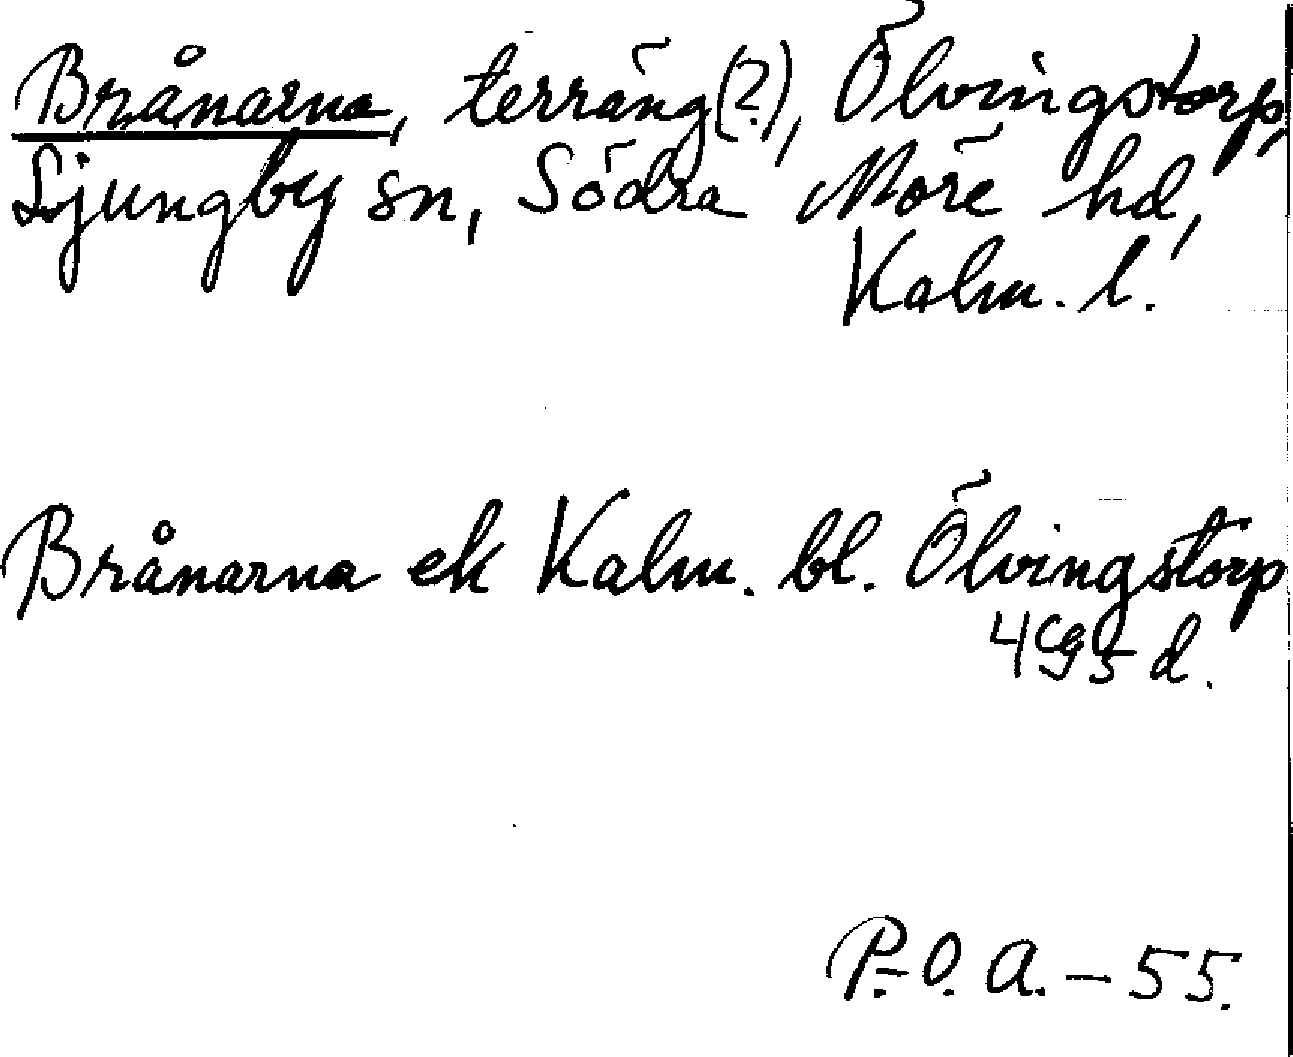 Brånarna, terräng(?), Ölvingstorp,
Ljungby sn, Södra Möre hd,
Kalm. l.
Brånarna ek Kalm. bl. Ölvingstorp
4g5 d.
P.-O. A. - 55.